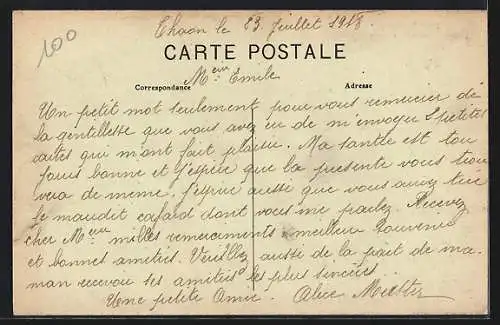 100
Thaon le 23 Juillet 1918.
CARTE POSTALE
Meur Emile
Correspondance
Adresse
Un petit mot seulement pour vous remercier de
la gentillesse que vous avez eu de m'envoyer 2 petites
cartes qui m'ont fait plaisir. Ma santée est tou
jours bonne et j'espère que la presente vous trou
vera de meme. J'espère aussi que vous aurez tué
le maudit cafard dont vous me parlez. Recevez
cher Meur milles remerciments meilleur souvenir
et bonnes amitiés. Veuillez aussi de la part de ma
man recevoir ses amitiés les plus sincères.
Une petite Amie. Alice